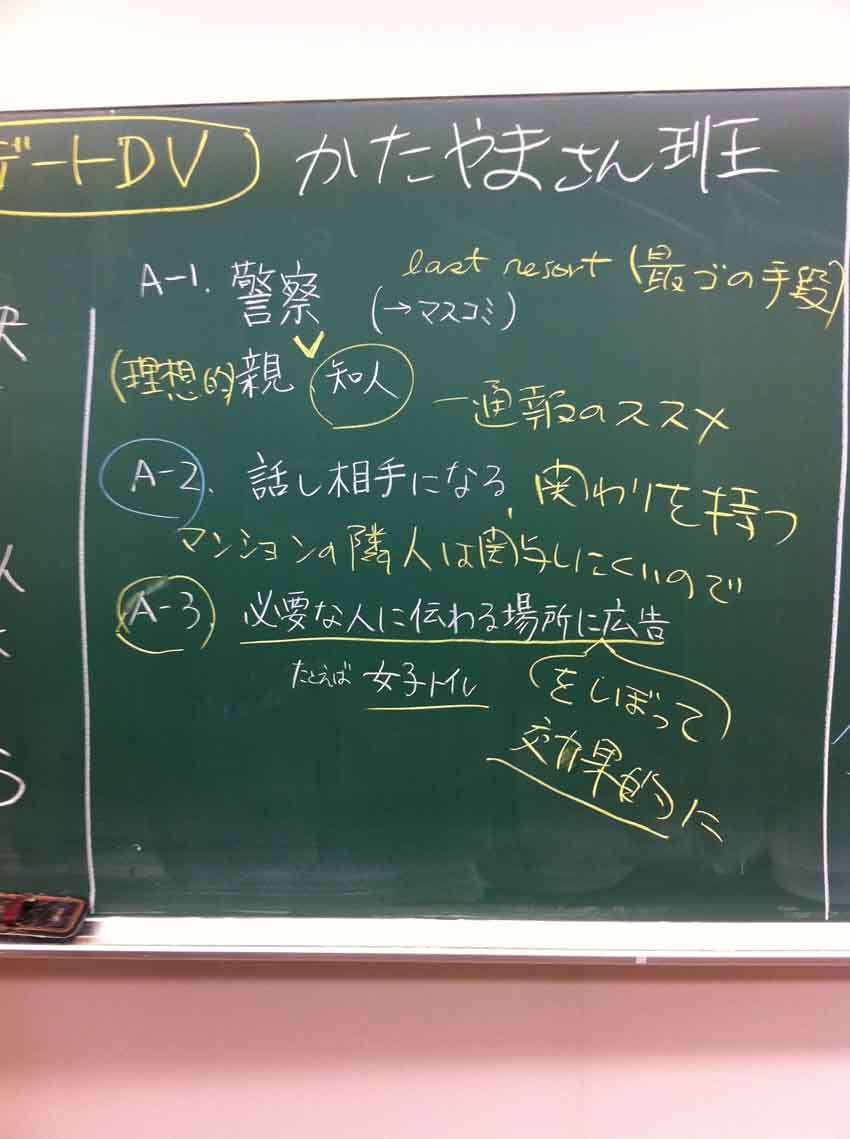 デートDV かたやまさん班
last resort (最ゴの手段)
A-1. 警察 (→マスコミ)
(理想的)親 知人
－通報のススメ
A-2. 話し相手になる, 関わりを持つ
マンションの隣人は関与しにくいので
A-3 必要な人に伝わる場所に広告
たとえば 女子トイレ
をしぼって
効果的に